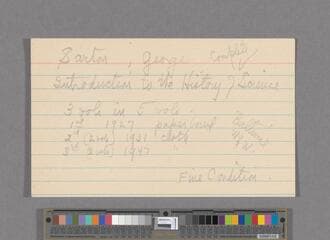 Sarton, George Complete
Introduction to the History of Science
3 vols in 5 vols.
1st 1927
2nd (2 vols) 1931 cloth
3rd 2 vols) 1947 "
Fine Condition.